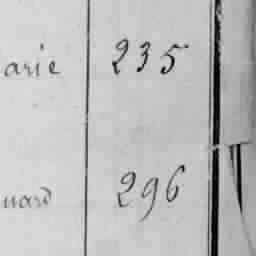 arie 235
uard 296